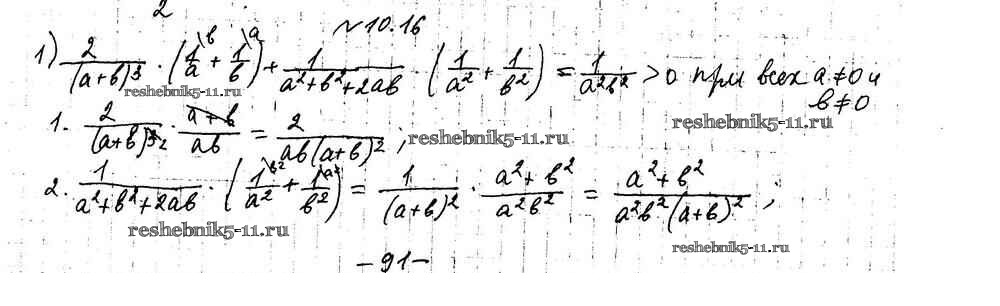 2
№10.16
1) \frac{2}{(a+b)^3} \cdot \left(\frac{1^{\backslash b}}{a} + \frac{1^{\backslash a}}{b}\right) + \frac{1}{a^2+b^2+2ab} \cdot \left(\frac{1}{a^2} + \frac{1}{b^2}\right) = \frac{1}{a^2b^2} > 0 при всех a ≠ 0 и
b ≠ 0
reshebnik5-11.ru
reshebnik5-11.ru
1. \frac{2}{(a+b)^{3 2}} \cdot \frac{a+b}{ab} = \frac{2}{ab(a+b)^2};
reshebnik5-11.ru
2. \frac{1}{a^2+b^2+2ab} \cdot \left(\frac{1^{\backslash b^2}}{a^2} + \frac{1^{\backslash a^2}}{b^2}\right) = \frac{1}{(a+b)^2} \cdot \frac{a^2+b^2}{a^2b^2} = \frac{a^2+b^2}{a^2b^2(a+b)^2};
reshebnik5-11.ru
reshebnik5-11.ru
-91-